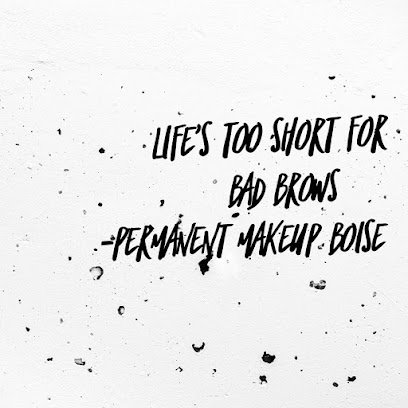 LIFE'S TOO SHORT FOR
BAD BROWS
-PERMANENT MAKEUP BOISE